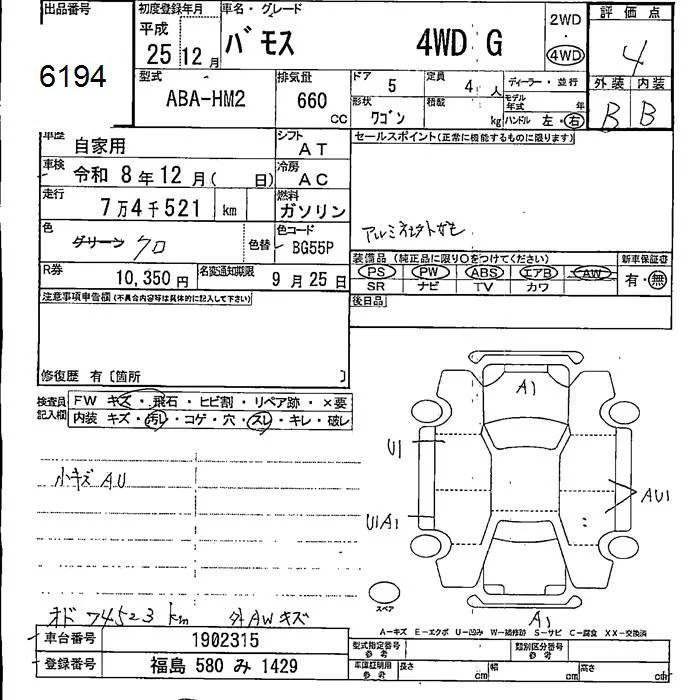 出品番号
6194
初度登録年月
平成
25 12月
車名・グレード
バモス 4WD G
2WD
・
4WD
評価点
4
外装 内装
B B
型式
ABA-HM2
排気量
660
cc
ドア
5
定員
4 人
ディーラー・並行
形状
ワゴン
積載
kg
モデル年式 年
ハンドル 左・右
車歴
自家用
シフト
AT
セールスポイント(正常に機能するものに限ります)
車検
令和 8年12月( 日)
冷房
AC
走行
7万4千521 km
燃料
ガソリン
色
グリーン クロ
色替
色コード
BG55P
装備品(純正品に限り○をつけてください)
新車保証書
PS PW ABS エアB AW
有・無
SR ナビ TV カワ
R券
10,350円
名変通知期限
9月25日
後日品
注意事項申告欄(不具合内容等は具体的に記入して下さい)
修復歴 有〔箇所 〕
検査員記入欄
FW キズ・飛石・ヒビ割・リペア跡・×要
内装 キズ・汚レ・コゲ・穴・スレ・キレ・破レ
A1
U1
小キズ AU
AU1
U1A1
スペア
オド 74523 km 外AWキズ
A1
A-キズ E-エクボ U-凹み W-補修跡 S-サビ C-腐食 XX-交換済
車台番号
1902315
型式指定番号
参考
類別区分番号
参考
登録番号
福島 580 み 1429
車庫証明用
参考
長さ cm
幅 cm
高さ cm